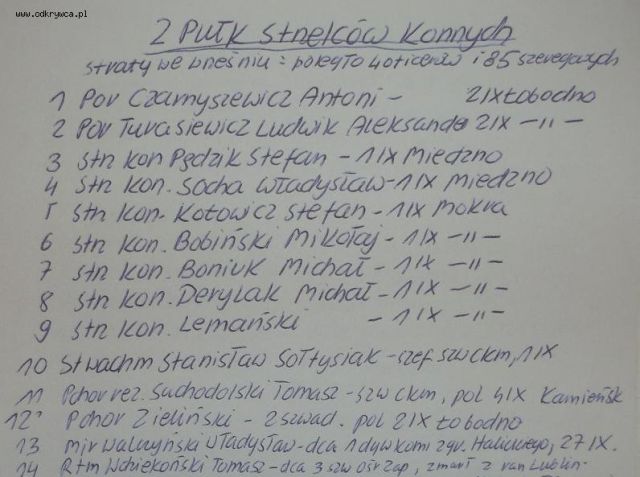 www.odkrywca.pl
2 PUŁK Strzelców Konnych
straty we wrześniu: poległo 4 oficerów i 85 szeregowych
1 Por Czarnyszewicz Antoni - 2 IX Łobodno
2 Por Turasiewicz Ludwik Aleksander 2 IX -"-
3 Str kon Pędzik Stefan - 1 IX Miedzno
4 Str kon. Socha Władysław - 1 IX Miedzno
5 Str kon. Kotowicz Stefan - 1 IX Mokra
6 Str kon. Bobiński Mikołaj - 1 IX -"-
7 Str kon. Boniuk Michał - 1 IX -"-
8 Str kon. Derylak Michał - 1 IX -"-
9 Str kon. Lemański - 1 IX -"-
10 St wachm Stanisław Sołtysiak - szef szw ckm, 1 IX
11 Pchor rez. Suchodolski Tomasz - szw ckm, pol 4 IX Kamieńsk
12 Pchor Zieliński - 2 szwad. pol 2 IX Łobodno
13 Mjr Walczyński Władysław - dca 1 dyw komb zgr. Halickiego, 27 IX.
14 Rtm Tomasz - dca 3 szw ośr zap, zmarł z ran Lublin